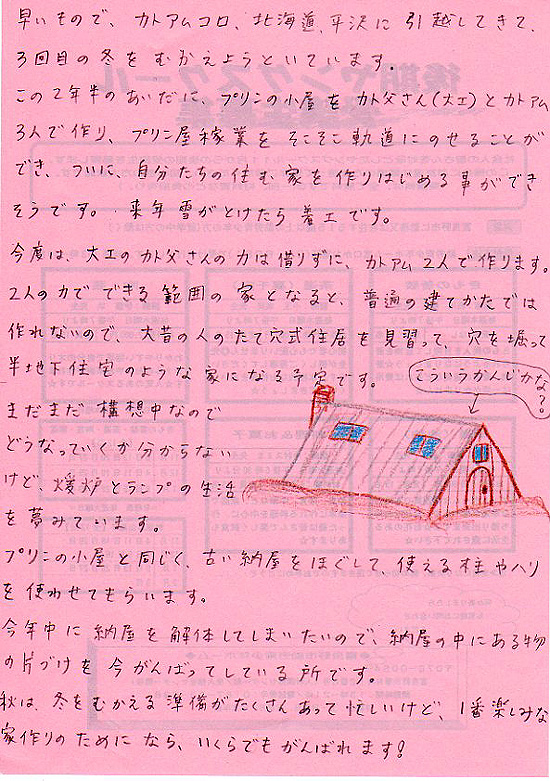 早いもので、カトアムコロ、北海道、平沢に引越してきて、
3回目の冬をむかえようといています。
この2年半のあいだに、プリンの小屋をカト父さん(大工)とカトアム
3人で作り、プリン屋稼業をそこそこ軌道にのせることが
でき、ついに、自分たちの住む家を作りはじめる事ができ
そうです。来年雪がとけたら着工です。
今度は、大工のカト父さんの力は借りずに、カトアム2人で作ります。
2人の力でできる範囲の家となると、普通の建てかたでは
作れないので、大昔の人のたて穴式住居を見習って、穴を掘って
半地下住宅のような家になる予定です。
こういうかんじかな?
まだまだ構想中なので
どうなっていくか分からない
けど、煖炉とランプの生活
を夢みています。
プリンの小屋と同じく、古い納屋をほぐして、使える柱やハリ
を使わせてもらいます。
今年中に納屋を解体してしまいたいので、納屋の中にある物
の片づけを今がんばってしている所です。
秋は、冬をむかえる準備がたくさんあって忙しいけど、1番楽しみな
家作りのためになら、いくらでもがんばれます!